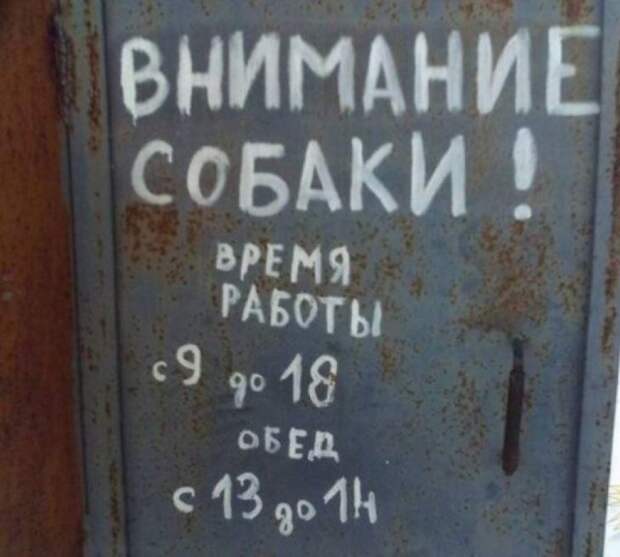 ВНИМАНИЕ
СОБАКИ !
ВРЕМЯ
РАБОТЫ
с 9 до 18
ОБЕД
с 13 до 14